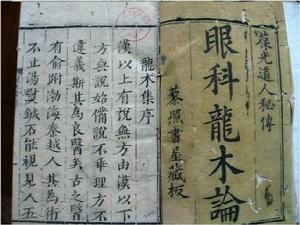 葆光道人秘傳
眼科龍木論
藜照書屋藏板
龍木集序
漢以上有說無方由漢以下
方無說始備說不乖理方不
違義斯其為良醫矣古之醫
有俞跗渤海秦越人其為術
不止湯熨鍼石能視見人五